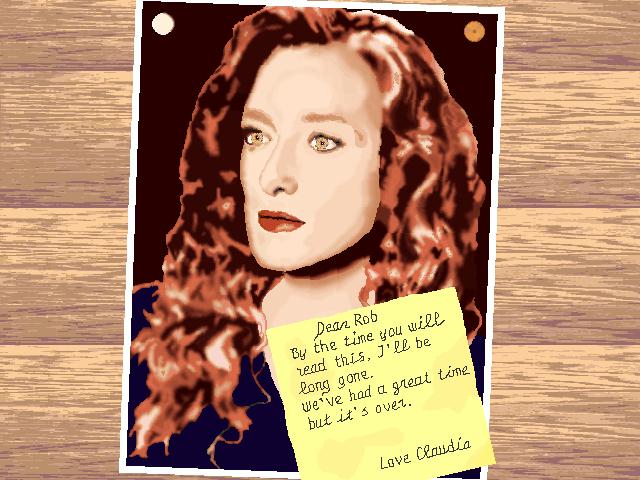 Dear Rob
By the time you will
read this, I'll be
long gone.
we've had a great time
but it's over.
Love Claudia